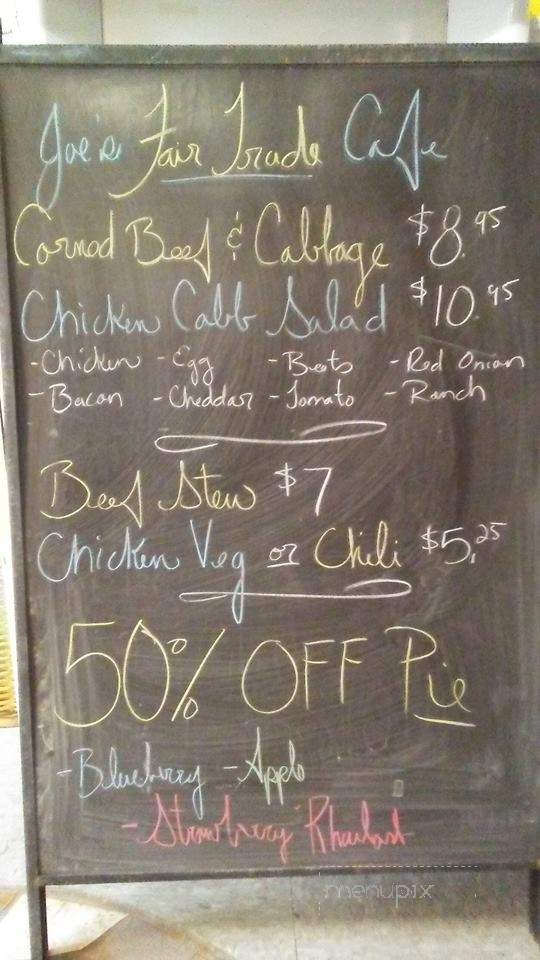 Joe's Fair Trade Cafe
Corned Beef & Cabbage $8.95
Chicken Cabb Salad $10.95
- Chicken - Egg - Beets - Red Onion
- Bacon - Cheddar - Tomato - Ranch
Beef Stew $7
Chicken Veg or Chili $5.25
50% OFF Pie
- Blueberry - Apple
- Strawberry Rhubarb
menupix